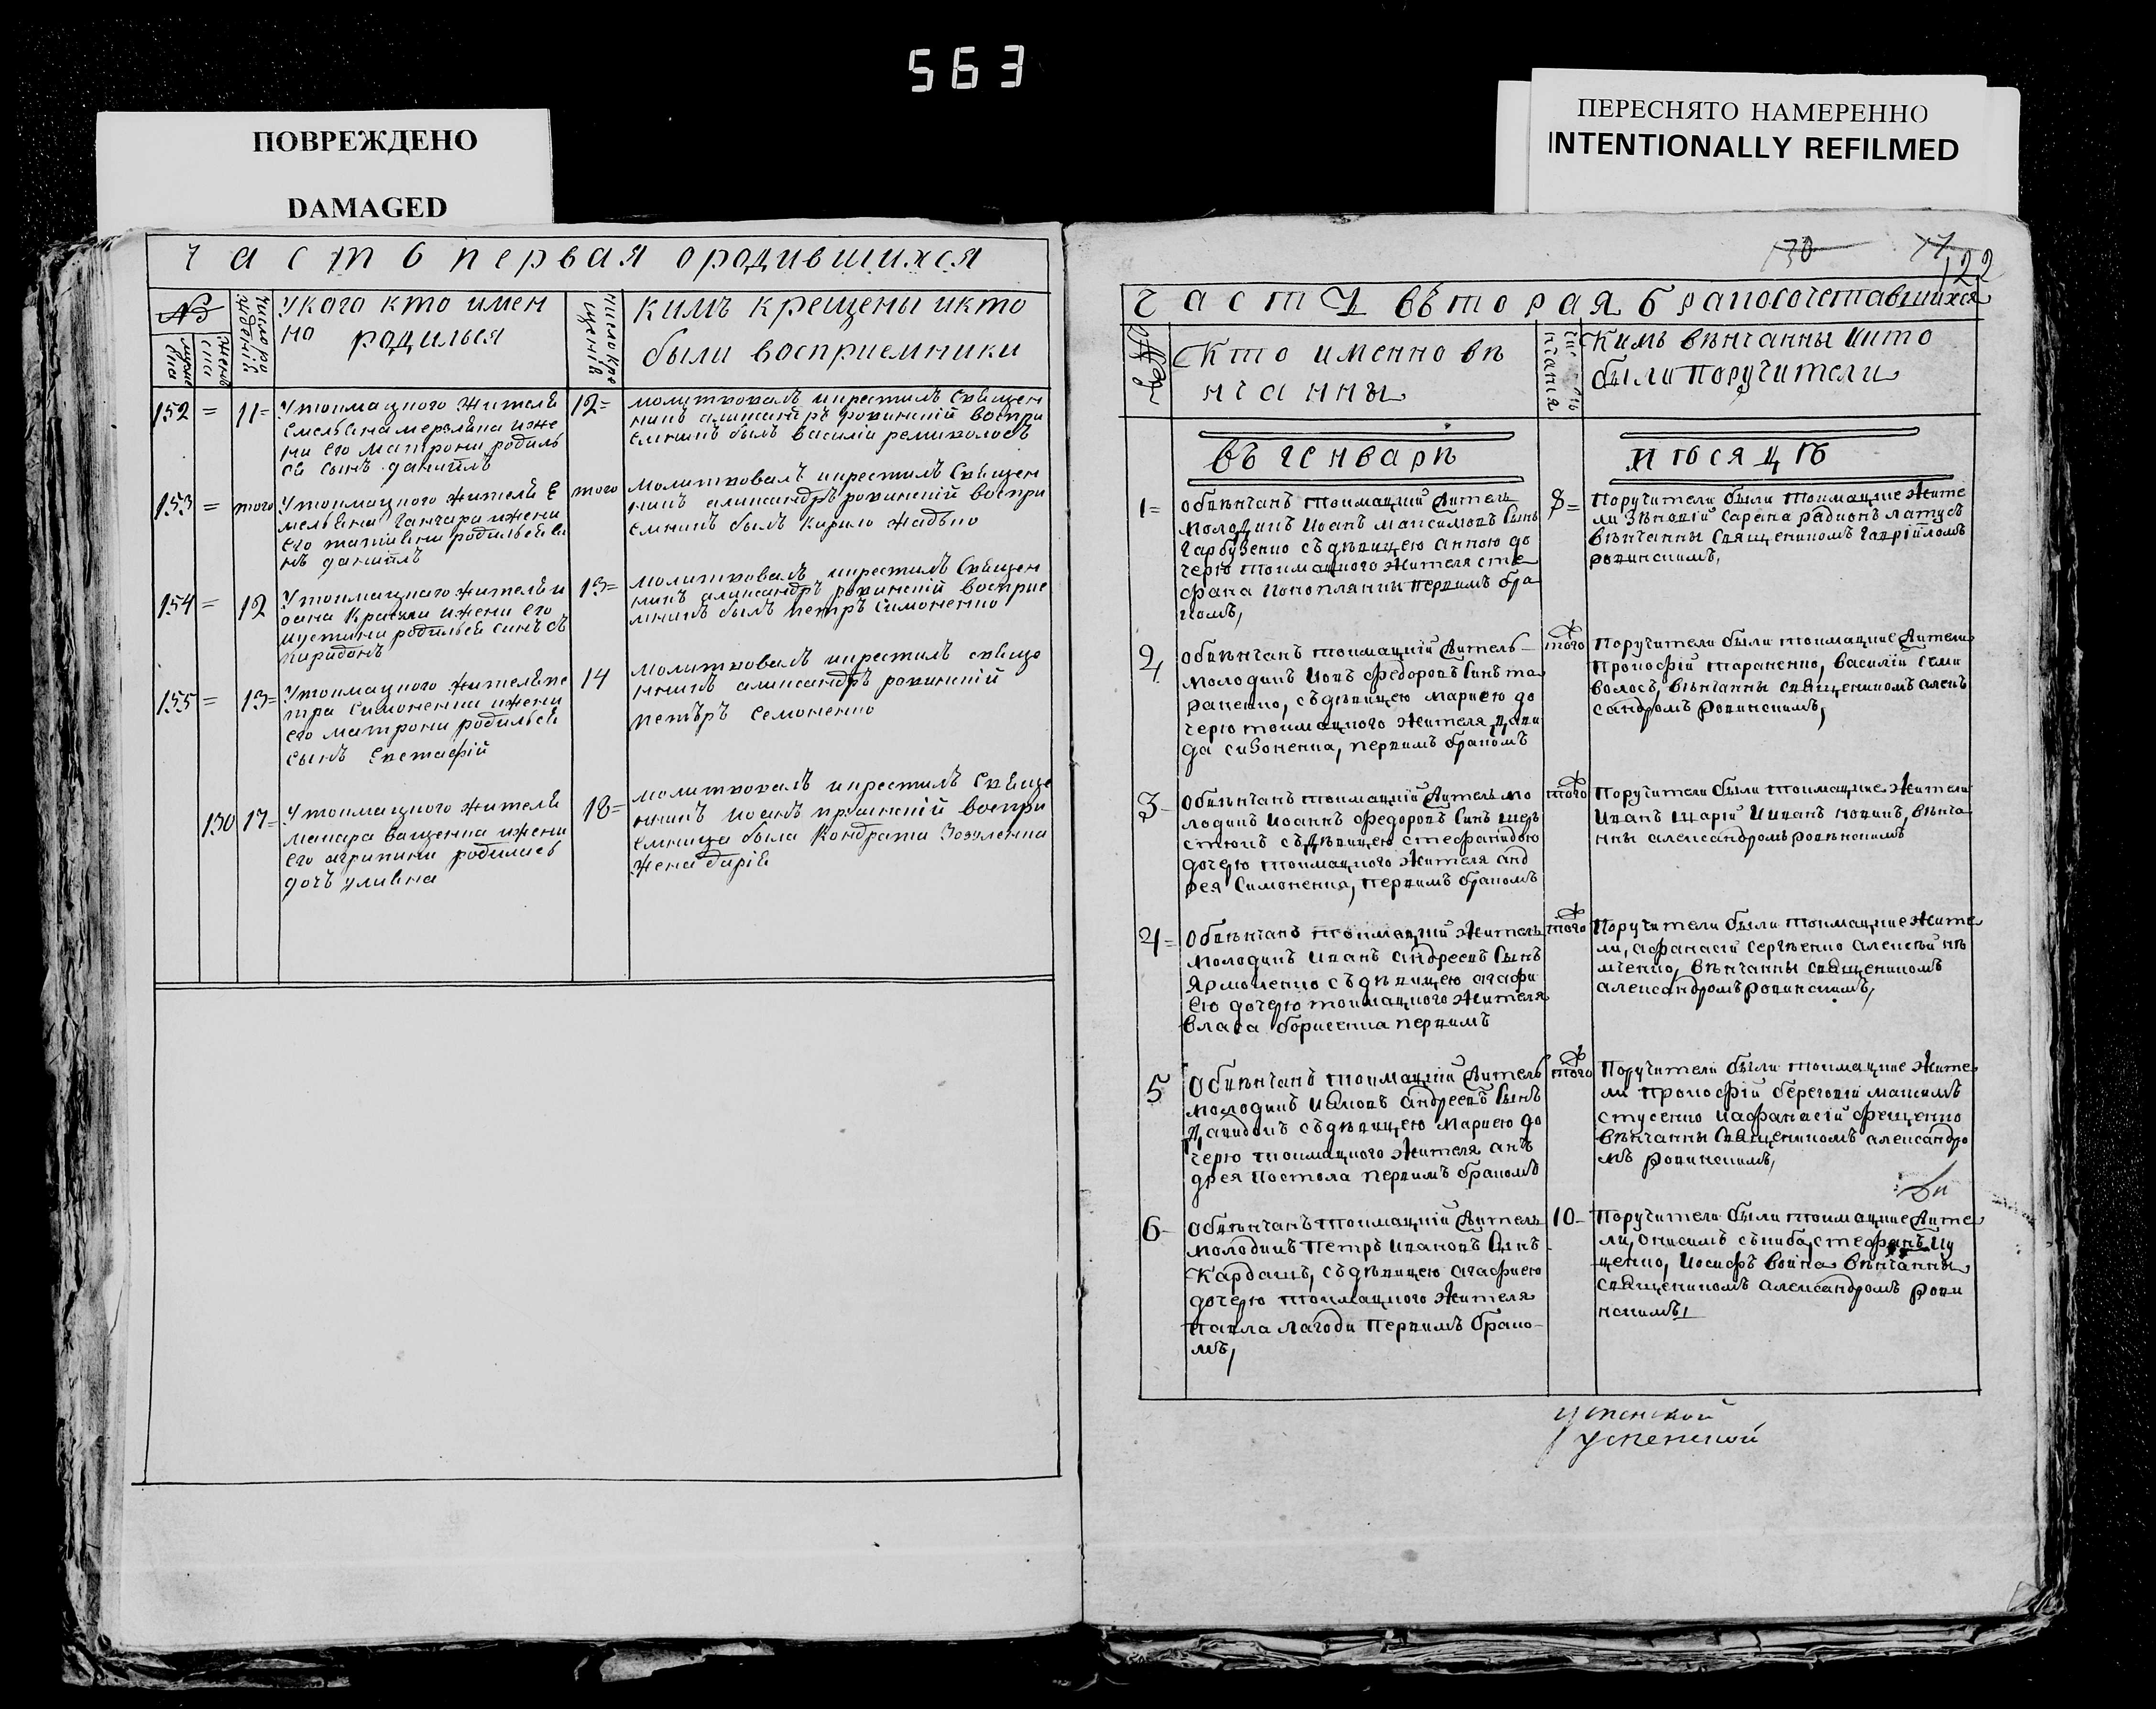 563
ПОВРЕЖДЕНО
DAMAGED
ПЕРЕСНЯТО НАМЕРЕННО
INTENTIONALLY REFILMED
часть первая ородившихся
№
укого кто имен
но родилься
кимъ крещены икто
были восприемники
152 = 11=
Утокмацкого жителя
его матрони родилъ
ся сынъ данііилъ
12=
молитвовалъ икрестилъ Священ
никъ александръ ровинскій воспри
емникъ былъ василій
153 = того
Утокмацкого жителя Е
мелѣяна Ганчара ижени
его татіяни родилься си
нъ даніилъ
того
молитвовалъ икрестилъ Священ
никъ александръ ровинскій воспри
емникъ былъ Кирило
154 = 12
Утокмацкого жителя и
оана ижени его
иустини родилься синъ с
пиридонъ
13=
молитвовалъ икрестилъ Священ
никъ александръ ровинскій восприе
мникъ былъ петръ Симоненко
155 = 13=
Утокмацкого жителя пе
тра Симоненка ижени
его матрони родилься
сынъ Евстафій
14
молитвовалъ икрестилъ свяще
нникъ александръ ровинскій
петъръ Семоненко
130 17=
Утокмацкого жителя
макара ващенка ижени
его агрипини родилась
дочъ улияна
18=
молитвовалъ икрестилъ Свяще
нникъ Иоанъ воспри
емница была Кондрата
жена дарія
130 77
122
часть вътораябракосочетавшихся
Кто именно вѣ
нчанны
Кимъ вѣнчанны икто
были поручители
въ генварѣ мѣсяцѣ
1=
обвѣнчанъ токмацкій житель
молодикъ Иоанъ Максимовъ сынъ
Гарбузенко съдѣвицею анною до
черю токмацкого жителя сте
фана Коноплянки первимъ бра
комъ,
8=
Поручители были токмацкие жите
ли Зѣновій Сарана радионъ латусъ
вѣнчанны Священикомъ Гавріиломъ
ровинскимъ,
2
обвѣнчанъ токмацкій житель
молодикъ Иовъ федоровъ синъ та
раненко, съдѣвицею мариею до
черю токмацкого жителя дави
да сизоненка, первимъ бракомъ
того
Поручители были токмацкие жители
Прокофій тараненко, василій семи
волосъ, вѣнчанны священикомъ алекъ
сандромъ ровинскимъ,
3
Обвѣнчанъ токмацкій житель мо
лодикъ Иоаннъ федоровъ Синъ шеръ
стюкъ съдѣвицею стефанидою
дочерю токмацкого жителя анд
рея Симоненка, первимъ бракомъ
того
Поручители были токмацкие жители
Иванъ шарій Иванъ новикъ, вѣнча
нны александромъ ровѣнскимъ
4=
Обвѣнчанъ токмацкий житель
молодикъ Иванъ андреевъ Сынъ
Ярмоленко съдѣвицею агафи
ею дочерю токмацкого жителя
власа борисенка первимъ
того
Поручители были токмацкие жите
ли, афанасій сергѣенко алексѣй нѣ
мченко, вѣнчанны священикомъ
александромъ ровинскимъ,
5
Обвѣнчанъ токмацкій житель
молодикъ Иаковъ андреевъ Сынъ
съдѣвицею мариею до
черю токмацкого жителя анъ
дрея Костюла первимъ бракомъ
того
Поручители были токмацкие жите
ли Прокофій береговій максимъ
стусенко иафанасій фещенко
вѣнчанны Священикомъ александро
мъ ровинскимъ,
6
обвѣнчанъ токмацкій житель
молодикъ Петръ Ивановъ Синъ
Кардашъ, съдѣвицею агафиею
дочерю токмацкого жителя
Павла лагоди Первимъ брако
мъ,
10
Поручители были токмацкие жите
ли, онисимъ скиба, стефанъ Ку
ценко, Иосифъ война вѣнчанны
священикомъ александромъ рови
нскимъ,
успенской
Успенской